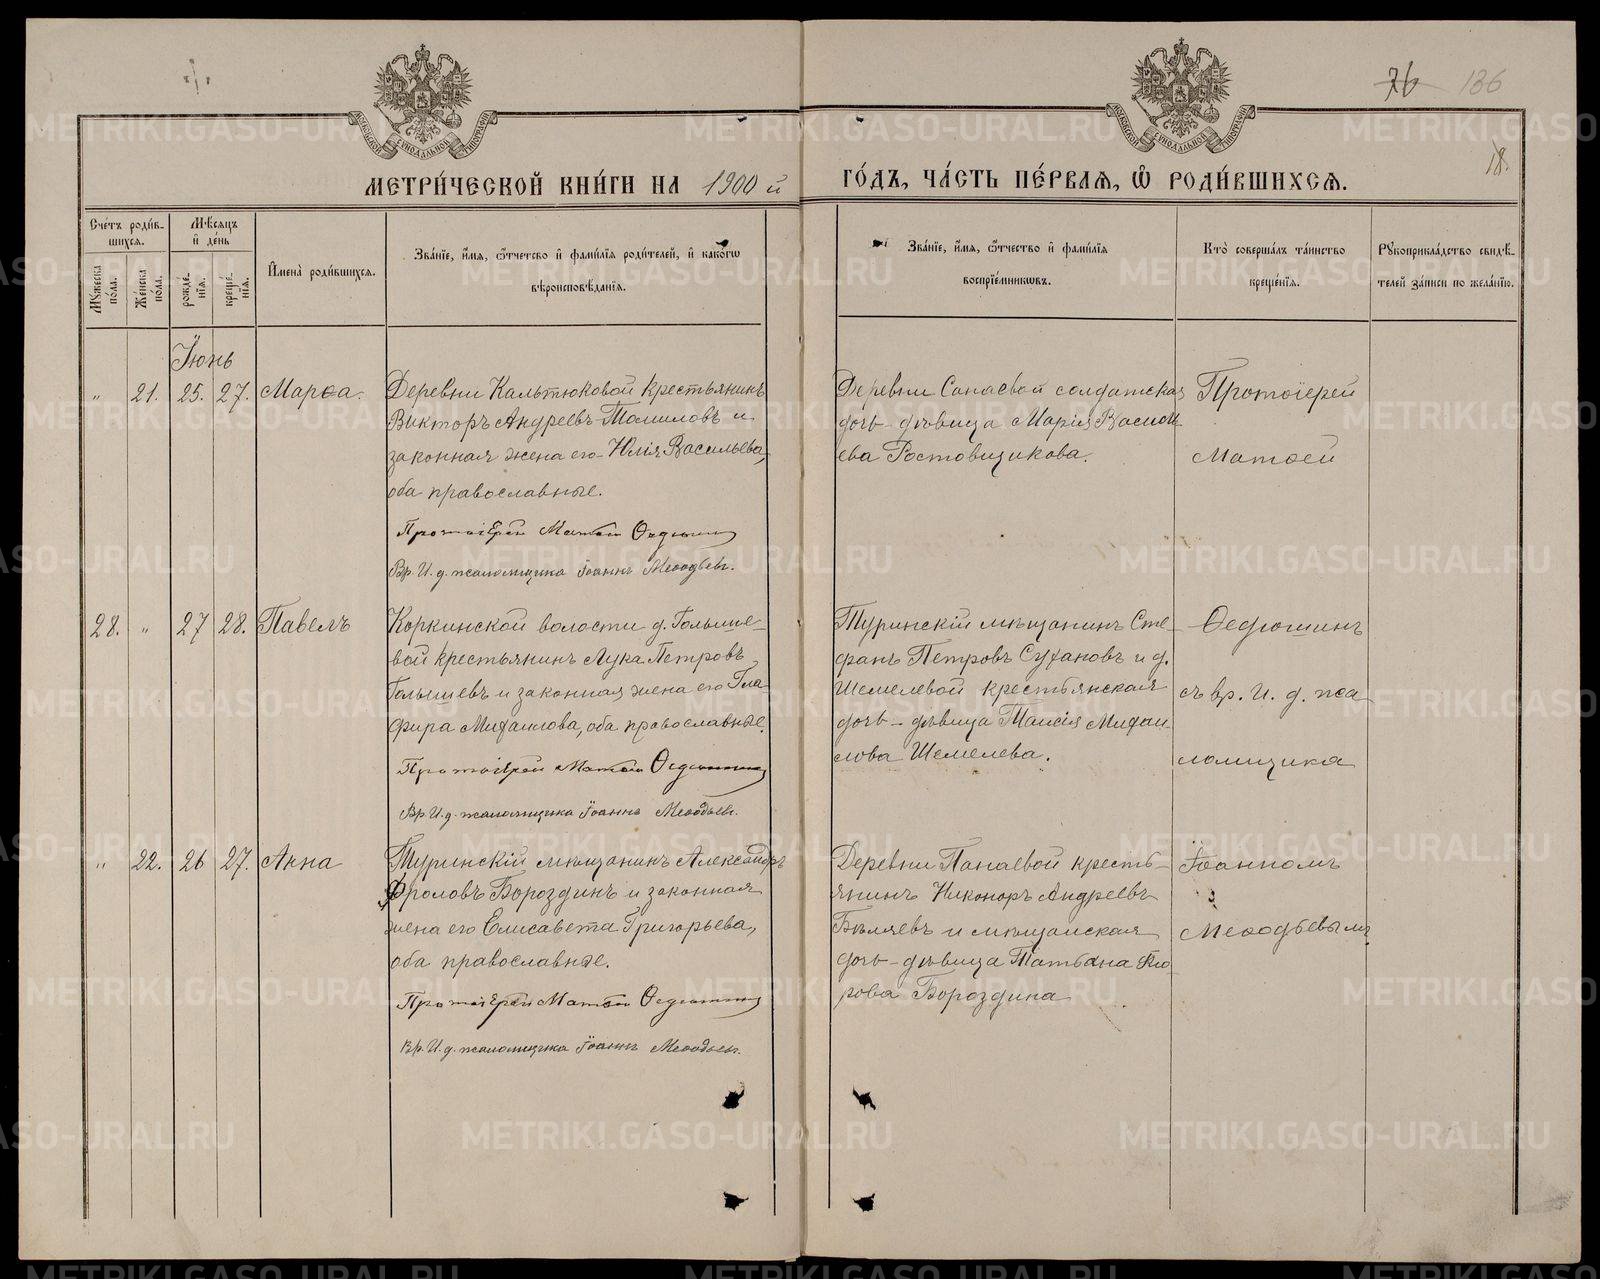 76 136
18.
МОСКОВСКОЙ СѴНОДАЛЬНОЙ ТИПОГРАФІИ
МОСКОВСКОЙ СѴНОДАЛЬНОЙ ТИПОГРАФІИ
МЕТРИ́ЧЕСКОЙ КНИ́ГИ НА 1900 й ГО́ДЪ, ЧА́СТЬ ПЕ́РВАЯ, Ѡ РОДИ́ВШИХСЯ.
Сче́тъ роди́в-
шихся.
Мꙋжеска по́ла.
Же́нска по́ла.
Мѣ́сяцъ
и҆ де́нь
рожде́нїя.
креще́нїя.
И҆мена̀ роди́вшихся.
Зва́нїе, и҆́мя, ѻ҆́тчетсво и҆ фами́лїя роди́телей, и҆ како́гѡ
вѣроисповѣ́данїя.
Зва́нїе, и҆́мя, ѻ҆́тчество и҆ фами́лїя
воспрїе́мникѡвъ.
Кто̀ соверша́лъ та́инство
креще́нїя.
Рꙋкоприкла́дство свидѣ́-
телей за́писи по жела́нїю.
Іюнь
" 21. 25. 27. Марѳа.
Деревни Кальтюковой крестьянинъ
Викторъ Андреевъ Томиловъ и
законная жена его Юлія Васильева,
оба православные.
Протоіерей Матѳей Ѳедюшинъ
Вр. И. д. псаломщика Іоаннъ Меѳодьевъ.
Деревни Сапаевой солдатская
дочь-дѣвица Марія Василь-
ева Ростовщикова.
Протоіерей
Матѳей
28. " 27 28. Павелъ
Коркинской волости д. Голыше-
вой крестьянинъ Лука Петровъ
Голышевъ и законная жена его Гла-
фира Михаилова, оба православные.
Протоіерей Матѳей Ѳедюшинъ
Вр. И. д. псаломщика Іоаннъ Меѳодьевъ.
Туринскій мѣщанинъ Сте-
фанъ Петровъ Сухановъ и д.
Шемелевой крестьянская
дочь-дѣвица Таисія Михаи-
лова Шемелева.
Ѳедюшинъ
съ вр. И. д. пса
ломщика
" 22. 26 27. Анна
Туринскій мѣщанинъ Александръ
Фроловъ Бороздинъ и законная
жена его Елисавета Григорьева,
оба православные.
Протоіерей Матѳей Ѳедюшинъ
Вр. И. д. псаломщика Іоаннъ Меѳодьевъ.
Деревни Панаевой кресть-
янинъ Никоноръ Андреевъ
Бѣляевъ и мѣщанская
дочь-дѣвица Татьяна Фло-
рова Бороздина
Іоанномъ
Меѳодьевымъ
METRIKI.GASO-URAL.RU